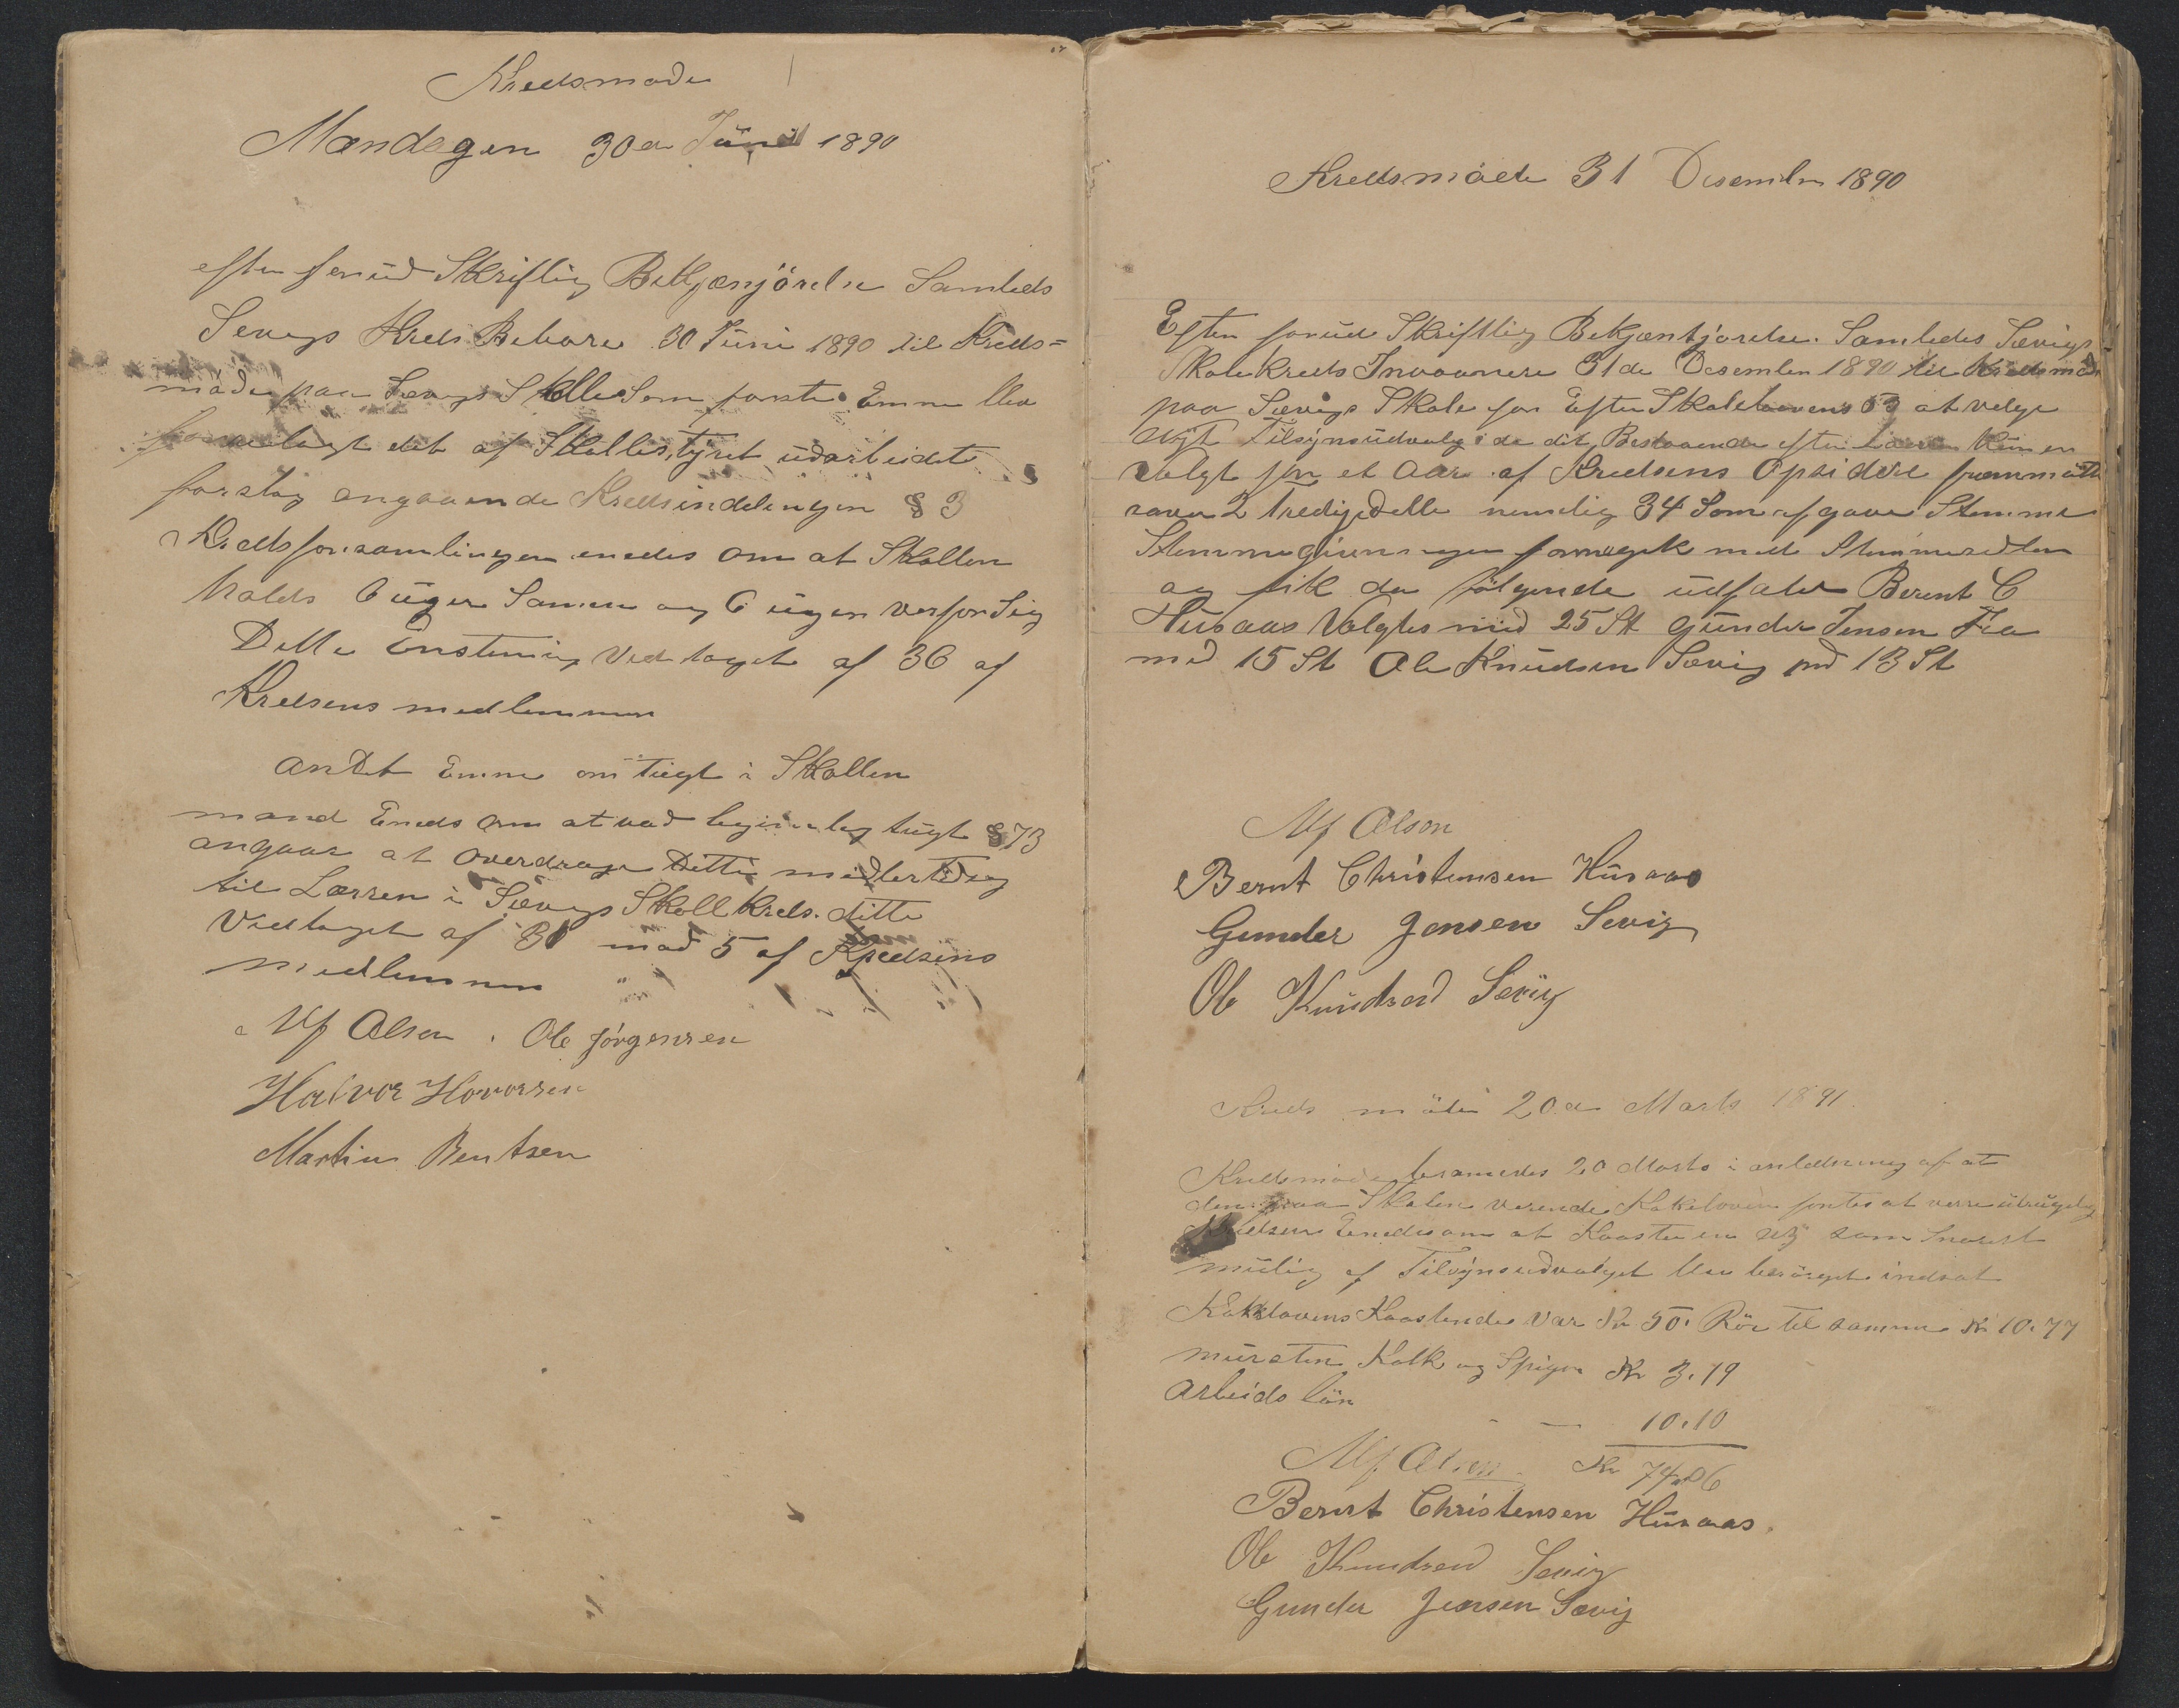 Kredsmøde
Mandagen 30te Juni 1890
efter forud Skriftlig Bekjænjörelse Samleds
Sevigs Kreds Bebore 30 Juni 1890 til Kreds=
möde paa Sævigs Skolle Som første Emne blev
forrelagt det af Skollestyret udarbeidet
forslag angaaende Kredsindelingen § 3
Kredsforsamlingen enedes om at Skollen
holdes 6 uger Samen og 6 ugen versor Sig
Dette Enstemig Vedtaget af 36 af
Kredsens medlemmer
andet Emne om tugt i Skollen
mand Eneds om at vad legemlig tugt § 73
angaar at overdrage Dette midlertidig
til Læreren i Sævigs Skollkreds. ditte
Vedtaget af 31 mod 5 af Kredsens
medlemmer
Alf Olson . Ole Jörgensen
Halvor Hovorsen
Martin Bentsen
Kredsmöde 31 Desember 1890
Efter forud Skriftlig Bekjæntjörelse. Samledes Sævigs
Skolekreds Invaanere 31de Desember 1890 til Kredsmöde
paa Sævigs Skole for Efter Skoleloovens 53 at velge
Nyt Tilsynsudvalg da dit Bestaaende efter Loven Kun er
valgt for et Aar. af Kredsens Opsidere fremmötte
over 2 tredjedelle nemlig 34 Som afgave Stemme
Stemmegivningen forregik med Stemmesedler
og fik da fölgende udfald Berent C
Husaas Valgtes med 25 St Gunder Jensen Fra
med 15 St Ole Knudsen Sævig md 13 St
Alf Olson
Bernt Christensen Husaas
Gunder Jensen Sevig
Ole Knudsen Sevig
Kreds möte 20de Marts 1891.
Kredsmöde beramedes 20 Marts i anledning af at
den paa Skolen verende Kakeloven fontes at verre ubrugelig
Kredsen Enedes om at Kooste en ny som Snarest
mulig af Tilsynsudvalget blev besörget indsat
Kakelovens Koostende var Kr 50. Rör til samme Kr 10.77
mursten Kalk og Spiger Kr 3.19
Arbeids lön - — 10.10
Alf Olsen. Kr 74.06
Bernt Christensen Husaas.
Ole Knudsen Sevig
Gunder Jensen Sævig